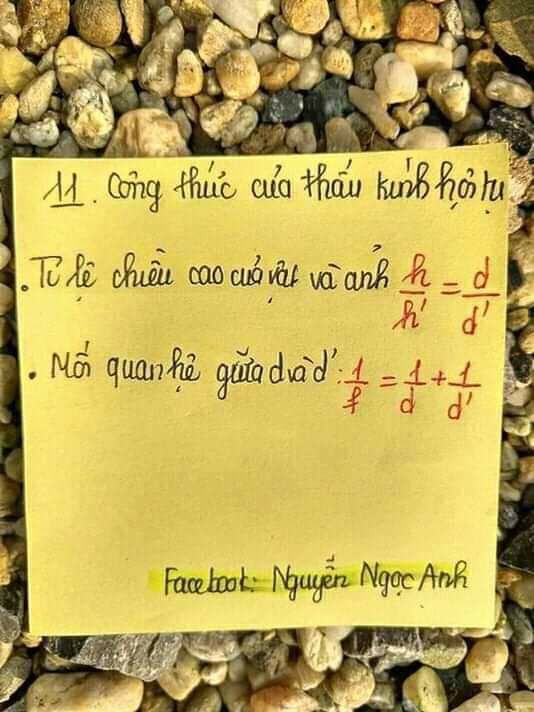 11. Công thức của thấu kính hội tụ
. Tỉ lệ chiều cao của vật và ảnh h/h' = d/d'
. Mối quan hệ giữa d và d': 1/f = 1/d + 1/d'
Facebook: Nguyễn Ngọc Anh